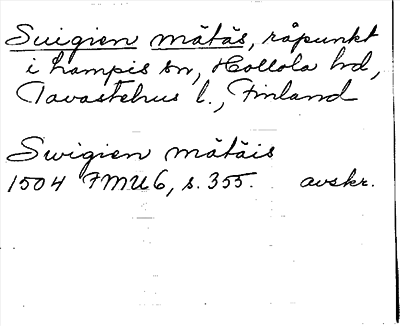 Suigien mätäs, råpunkt
i Lampis sn, Hollola hd,
Tavastehus l., Finland
Swigien mätäis
1504 FMU 6, s. 355. avskr.